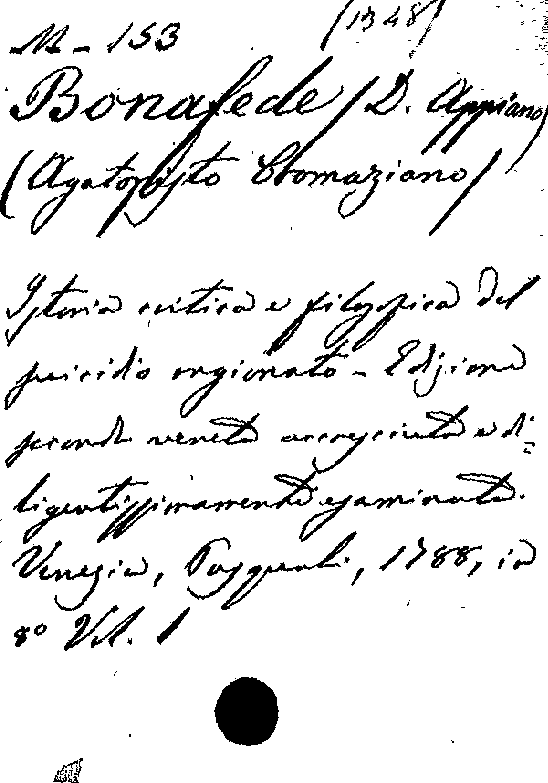 M - 153 (1348)
Bonafede (D. Appiano)
(Agatopisto Cromaziano)
Istoria critica e filosofica del
suicidio ragionato - Edizione
seconda veneta accresciuta e di=
ligentissimamente esaminata.
Venezia, Pasquali, 1788, in
8º Vol. 1